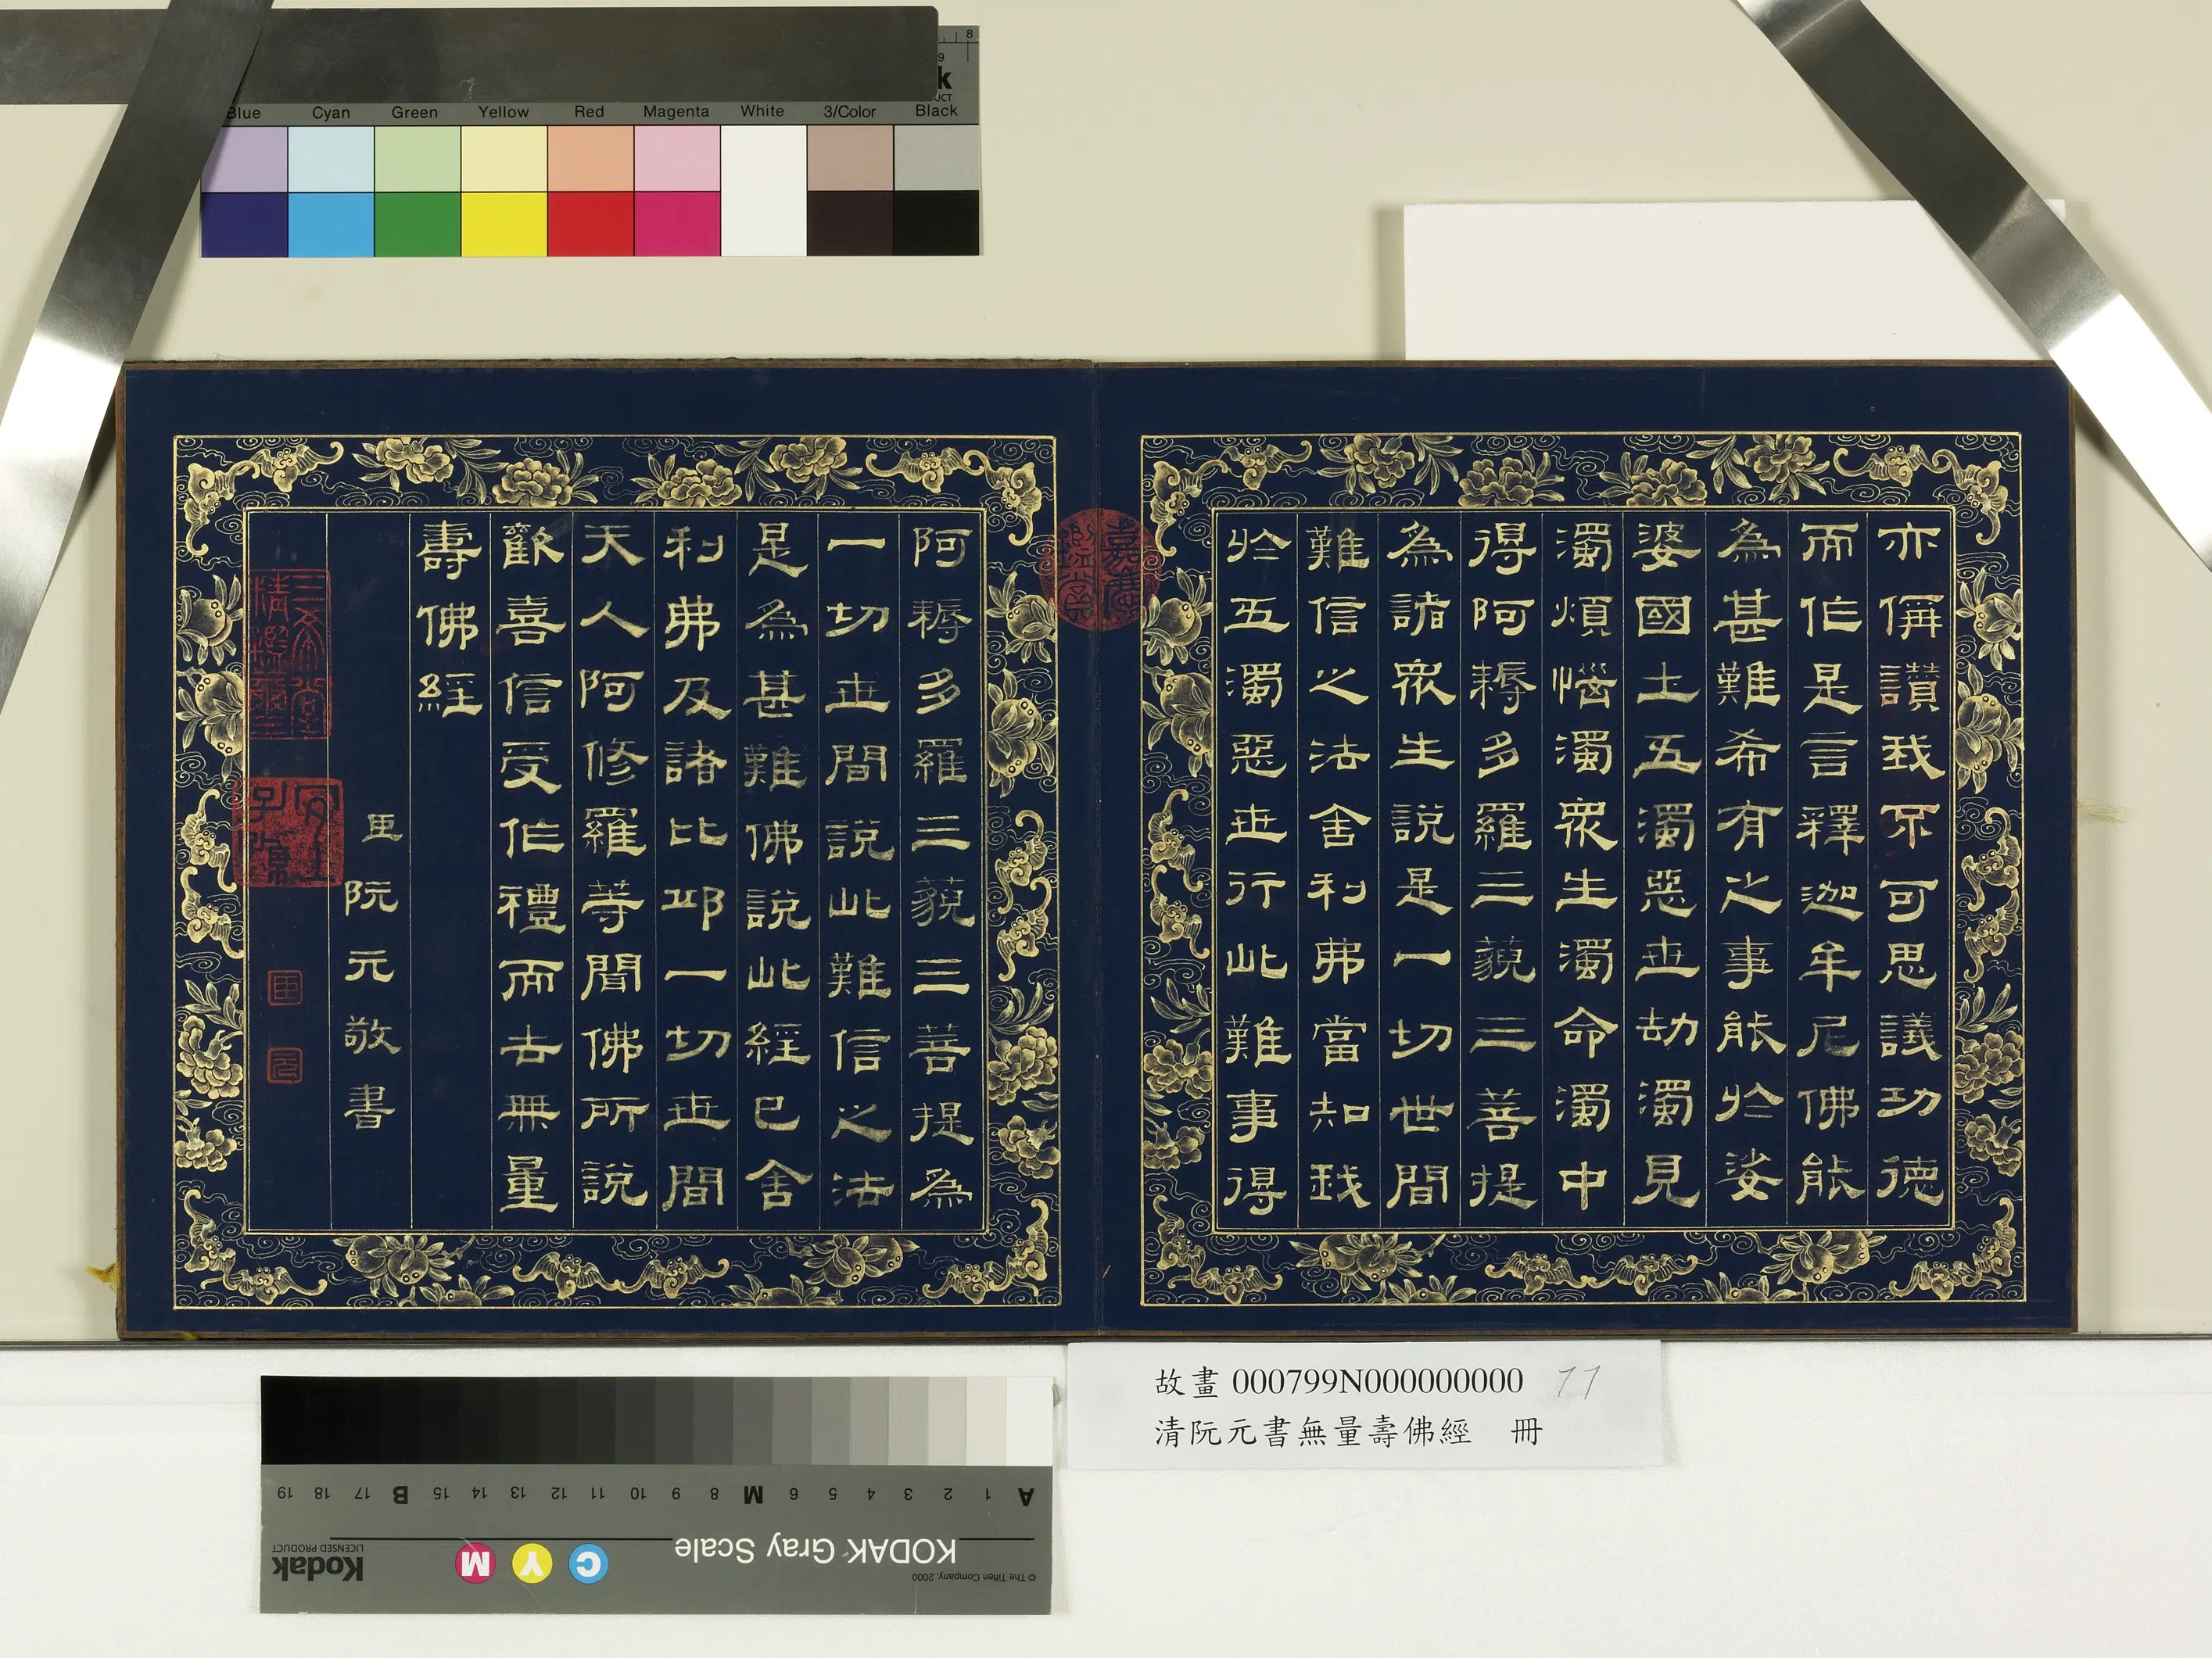 Blue Cyan Green Yellow Red Magenta White 3/Color Black
亦偁讚我不可思議功德
而作是言釋迦牟尼佛能
為甚難希有之事能於娑
婆國土五濁惡世劫濁見
濁煩惱濁眾生濁命濁中
得阿耨多羅三藐三菩提
為諸眾生說是一切世間
難信之法舍利弗當知我
於五濁惡世行此難事得
嘉慶鑑賞
阿耨多羅三藐三菩提為
一切世間說此難信之法
是為甚難佛說此經已舍
利弗及諸比邱一切世間
天人阿修羅等聞佛所說
歡喜信受作禮而去無量
壽佛經
臣阮元敬書
三希堂精鑑璽
宜子孫
臣
元
故畫 000799N000000000 11
清阮元書無量壽佛經 冊
A 1 2 3 4 5 6 M 8 9 10 11 12 13 14 15 B 17 18 19
KODAK Gray Scale
C Y M
Kodak
LICENSED PRODUCT
© The Tiffen Company, 2000